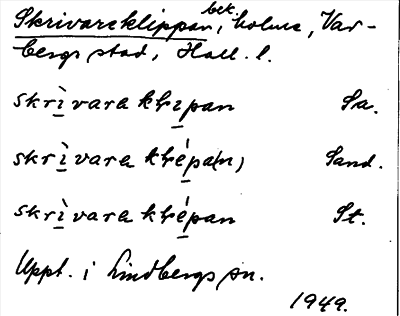 Skrivareklippan, bet. holme, Var-
bergs stad, Hall. l.
skrì̱vara kḷɪ̱pan Sa.
skrì̱vara kḷé̱pa(n) Sand.
skrì̱vara kḷé̱pan St.
Uppt. i Lindbergs sn.
1949.